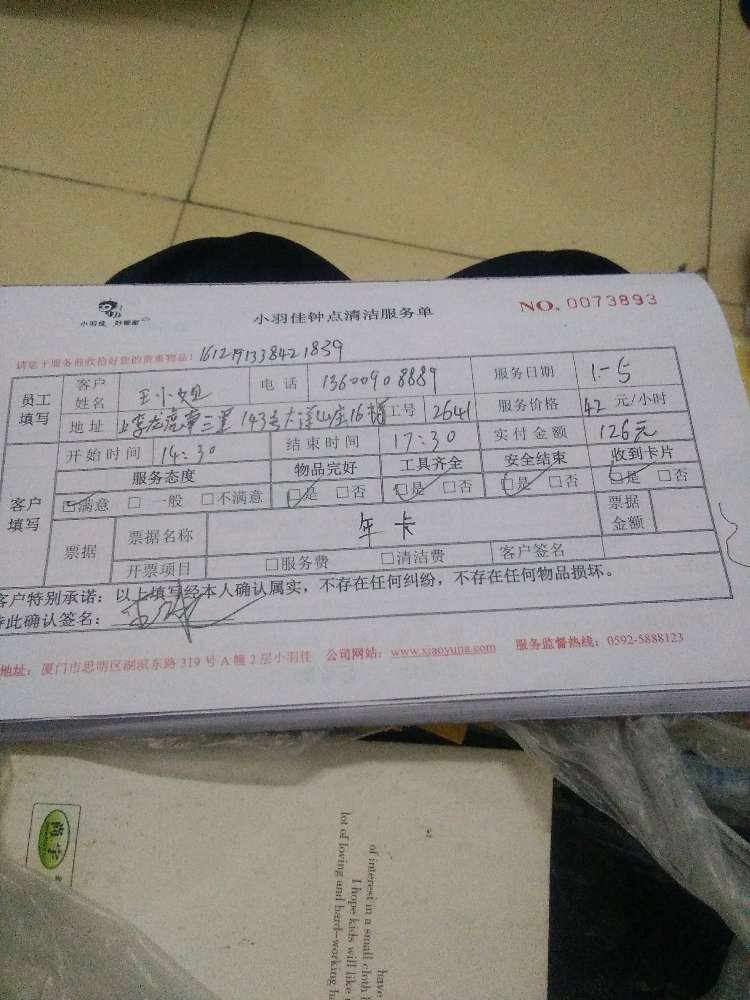 小羽佳 好管家
小羽佳钟点清洁服务单
NO. 0073893
请您于服务前收拾好您的贵重物品!
员工填写 客户姓名 王小姐 电话 13600908889 服务日期 1-5
地址 143号 16 工号 2641 服务价格 42 元/小时
客户填写 开始时间 14:30 结束时间 17:30 实付金额 126元
服务态度 物品完好 工具齐全 安全结束 收到卡片
☑满意 □一般 □不满意 ☑是 □否 ☑是 □否 ☑是 □否 ☑是 □否
票据 票据名称 年卡 票据金额
开票项目 □服务费 □清洁费 客户签名
客户特别承诺:以上填写经本人确认属实,不存在任何纠纷,不存在任何物品损坏。
特此确认签名:
地址:厦门市思明区湖滨东路 319 号 A 幢 2 层小羽佳 公司网站:www.xiaoyujia.com 服务监督热线:0592-5888123
have
of interest in a small cloth
I hope kids will like
lot of loving and hard-working